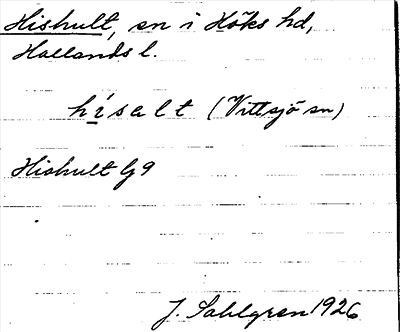 Hishult, sn i Höks hd,
Hallands l.
hísalt (Vittsjö sn)
Hishult G9
J. Sahlgren 1926